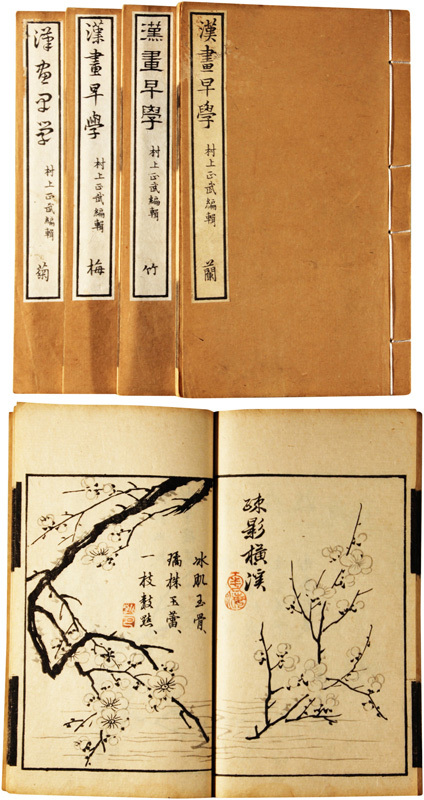 漢畫早學
村上正武編輯
蘭
漢畫早學
村上正武編輯
竹
漢畫早學
村上正武編輯
梅
漢画早学
村上正武編輯
菊
疎影橫渓
冰肌玉骨
璚株玉蕾、
一枝数點、